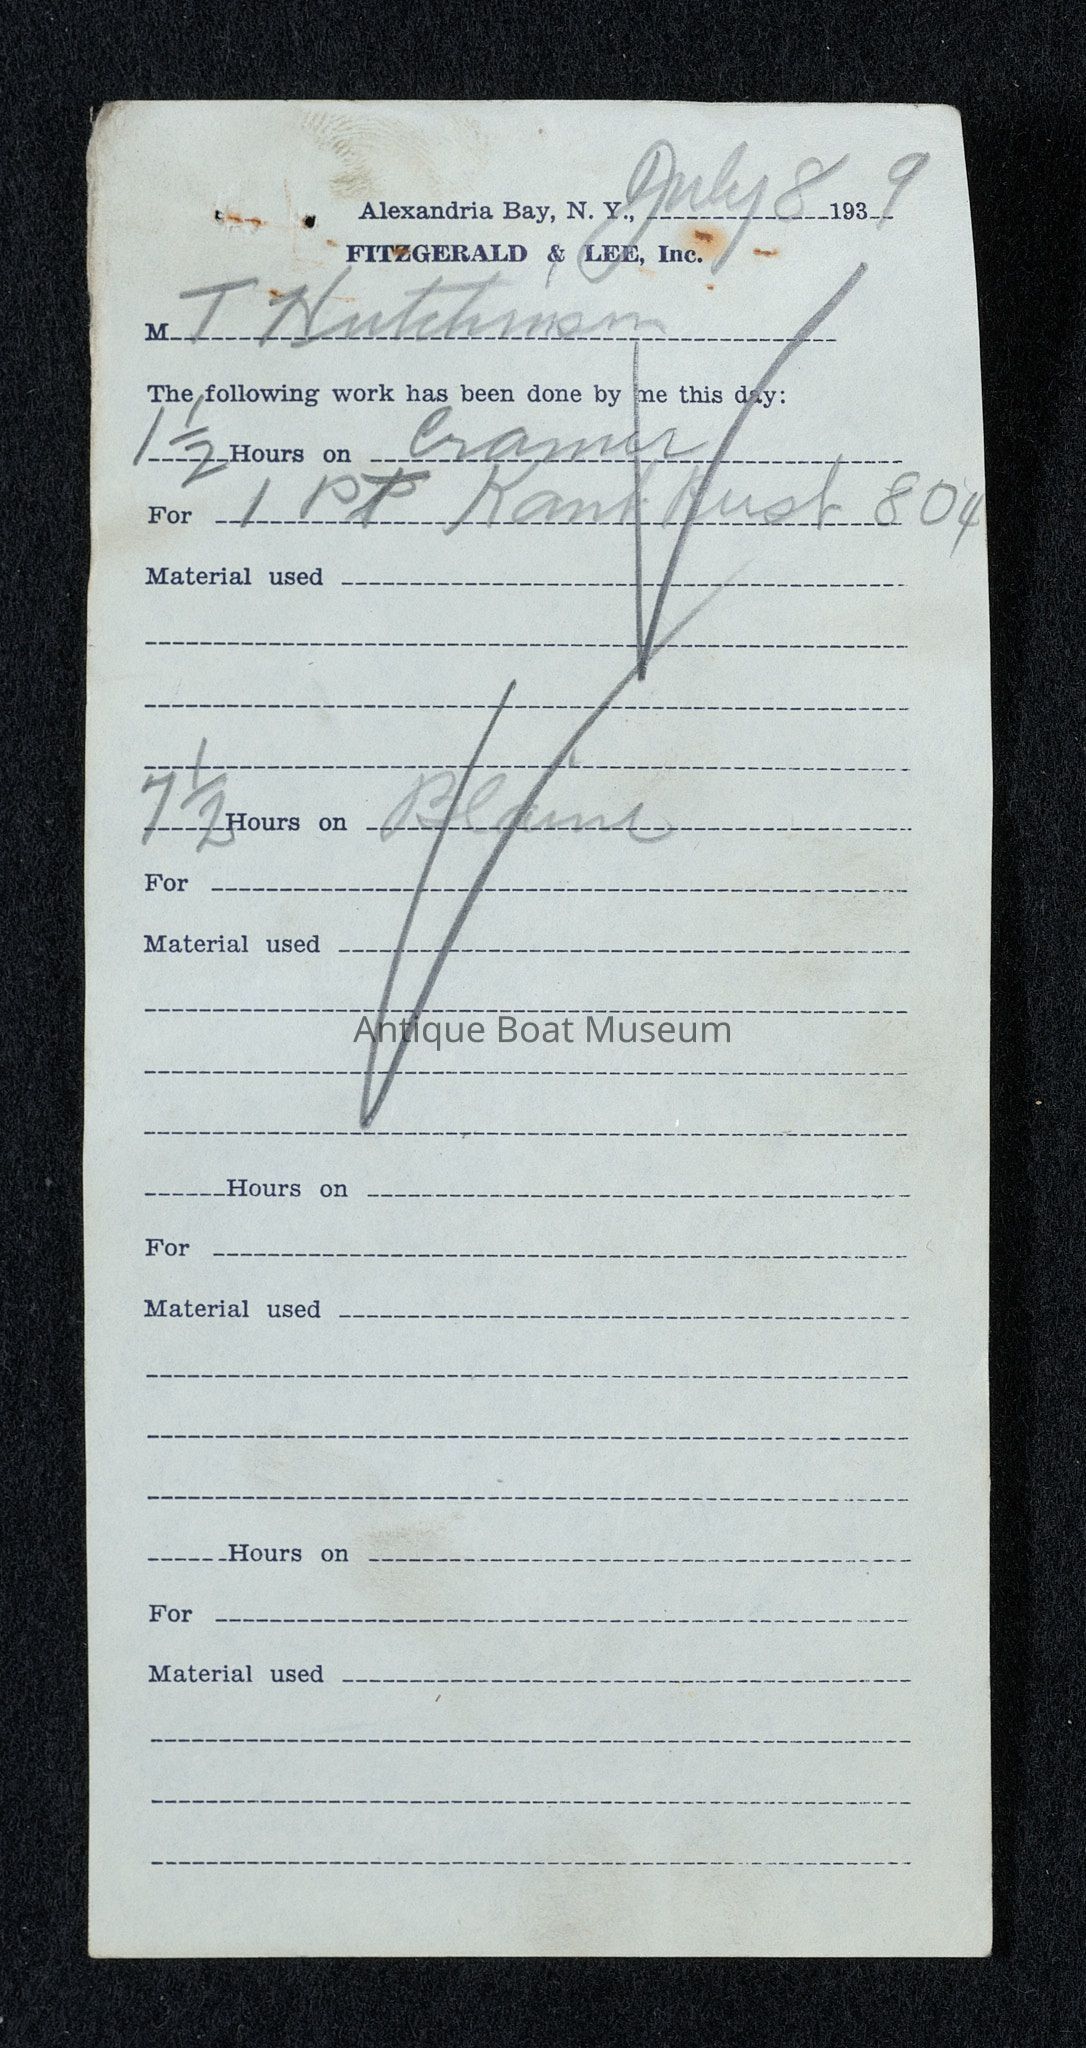 Alexandria Bay, N. Y., July 8 1939
FITZGERALD & LEE, Inc.
M T Hutchinson
The following work has been done by me this day:
1 1/2 Hours on Cramer
For 1 Pt Kant Rust 80¢
Material used
7 1/2 Hours on Blaine
For
Material used
Antique Boat Museum
Hours on
For
Material used
Hours on
For
Material used